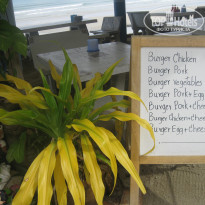 Burger Chicken
Burger Pork
Burger Vegetables
Burger Pork + Egg
Burger Pork + Chee
Burger Chicken + Chee
Burger Egg + Chee